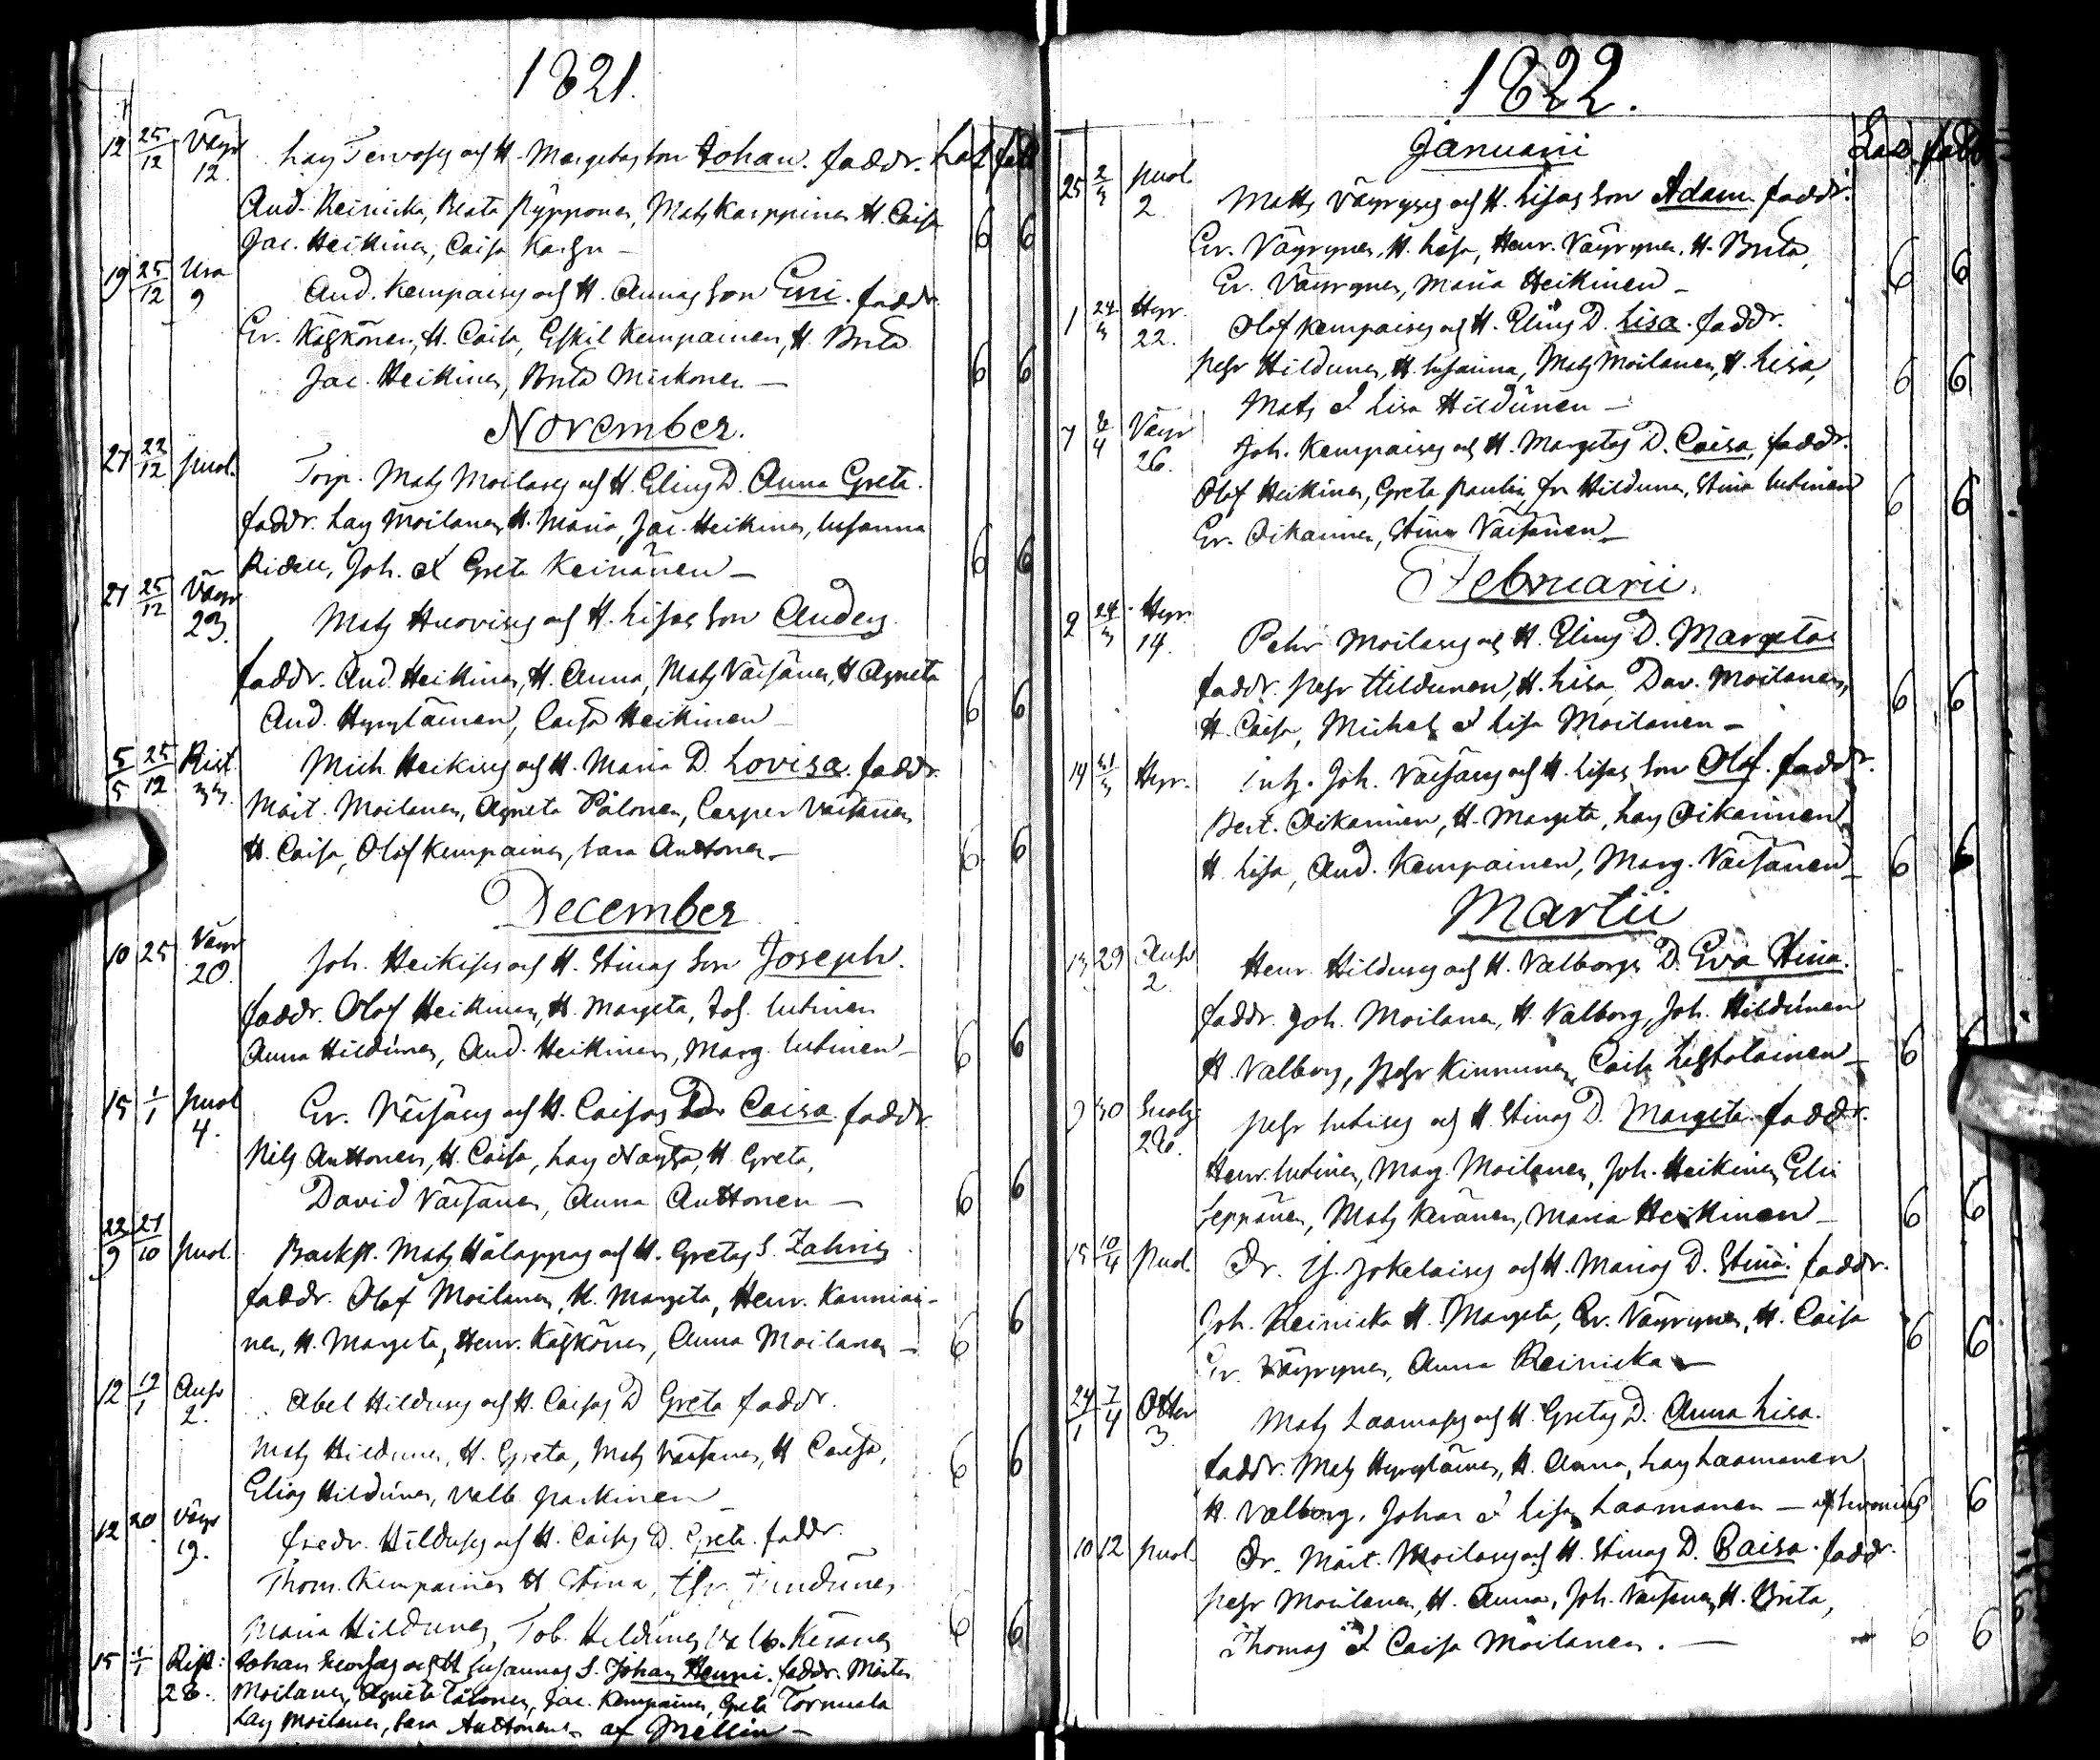 1821.
12 25/12 Väyr 12. Lars Tervosen och H. Margetas son Johan. faddr. Las fadd
And. Reinicka, Beata Pypponen, Mats Karppinen H. Caisa
Jac. Heikinen, Caisa
6 6
19 25/12 Ura 9 And. Kempaisen och H. Annas son Eric. faddr.
Er. Käskönen, H. Caisa, Eskil Kempainen, H. Brita
Jac. Heikinen, Brita Miskonen —
6 6
November.
27 22/12 Puol. Torp. Mats Moilasen och H. Elins D. Anna Greta.
faddr. Lars Moilanen, H. Maria, Jac. Heikinen, Susanna
Ridell, Joh. & Greta Keinänen —
6 6
21 25/12 Väyr 23. Mats Huovisen och H. Lisas son Anders.
faddr. And. Heikinen, H. Anna, Mats Väisänen, H Agneta
And. Hyryläinen, Caisa Heikinen —
6 6
5/5 25/12 Rist 33. Mich. Heikisen och H. Maria D. Lovisa. faddr.
Mårt. Moilanen, Agneta Tålonen, Casper Väisänen
H. Caisa, Olof Kempainen, Sara Anttonen —
6 6
December
10 25 Väyr 20. Joh. Heikisen och H. Stinas son Joseph.
faddr. Olof Heikinen, H. Margeta, Jos. Lutinen
Anna Hildunen, And. Heikinen, Marg. Lutinen —
6 6
15 1/1 Puol 4. Er. Väisäsen och H. Caisas D. Caisa. faddr.
Nils Anttonen, H. Caisa, Lars Näytsä, H. Greta,
David Väisänen, Anna Anttonen —
6 6
22/9 21/10 Puol. Backst. Mats Hålappas och H. Gretas S. Zahris
faddr. Olof Moilanen, H. Margeta, Henr. Kanniai-
nen, H. Margeta, Henr. Käskönen, Anna Moilanen —
6 6
12 12/1 Ansr 2. Abel Hildusen och H. Caisas D Greta faddr.
Mats Hildunen, H. Greta, Mats Väisänen, H Caisa,
Elias Hildunen, Valb Parkinen —
6 6
12 20. Väyr 19. Fredr. Hildusen och H. Caisas D. Greta. faddr.
Thom. Kempainen H Stina,
Maria Hildunen, Tob. Hildunen, Valb. Keränen
6 6
15 1/1 Rist: 28. Johan och H Susannas S. Johan Henric. faddr. Mårten
Moilanen, Agneta Tålonen, Jac. Kempainen, Greta Tormula
Lars Moilanen, Sara Anttonen — af Mellin —
1822.
Januarii
Las fadd
25 2/3 Puol 2. Matts Väyrysen och H. Lisas son Adam. faddr.
Er. Väyrynen, H. Lisa, Henr. Väyrynen, H. Brita,
Er. Väyrynen, Maria Heikinen —
6 6
1 24/3 Hyr. 22. Olof Kempaisen och H. Elins D. Lisa. faddr.
Pehr Hildunen, H. Susanna, Mats Moilanen, H. Lisa,
Mats & Lisa Hildunen —
6 6
7 6/4 Väyr 26. Joh. Kempaisen och H. Margetas D. Caisa, faddr.
Olof Heikinen, Greta Paulin, Hildunen, Stina Lutinen
Er. Oikarinen, Stina Väisänen —
6 6
Februarii.
2 24/3 Hyr. 14. Pehr Moilasen och H. Elins D. Margeta
faddr. Pehr Hildunen, H. Lisa, Dav. Moilanen,
H. Caisa, Michel & Lisa Moilanen —
6 6
14 Hyr. Inh. Joh. Väisäsen och H. Lisas son Olof. faddr.
Bert. Oikarinen, H. Margeta, Lars Oikarinen
H. Lisa, And. Kempainen, Marg. Väisänen —
6 6
Martii
13 29 Ansr 2. Henr. Hildusen och H. Valborgs D. Eva Stina.
faddr. Joh. Moilanen, H. Valborg, Joh. Hildunen
H. Valborg, Pehr Kinnunen, Caisa —
6
9 30 26. Pehr Lutisen och H. Stinas D. Margeta. faddr.
Henr. Lutinen, Marg. Moilanen, Joh. Heikinen, Elin
Seppänen, Mats Keränen, Maria Heikinen —
6 6
15 10/4 Puol. Dr. Is. Jokelaisen och H. Marias D. Stina. faddr.
Joh. Reinicka H. Margeta, Er. Väyrynen, H. Caisa
Er. Väyrynen, Anna Reinicka —
6 6
24/1 7/4 3. Mats Laamasen och H. Gretas D. Anna Lisa.
faddr. Mats Hyryläinen, H. Anna, Lars Laamanen
H. Valborg, Johan & Lisa Laamanen —
6 6
10 12 Puol. Dr. Mårt. Moilasen och H. Stinas D. Caisa. faddr.
Pehr Moilanen, H. Anna, Joh. Väisänen, H. Brita,
Thomas & Caisa Moilanen. —
6 6